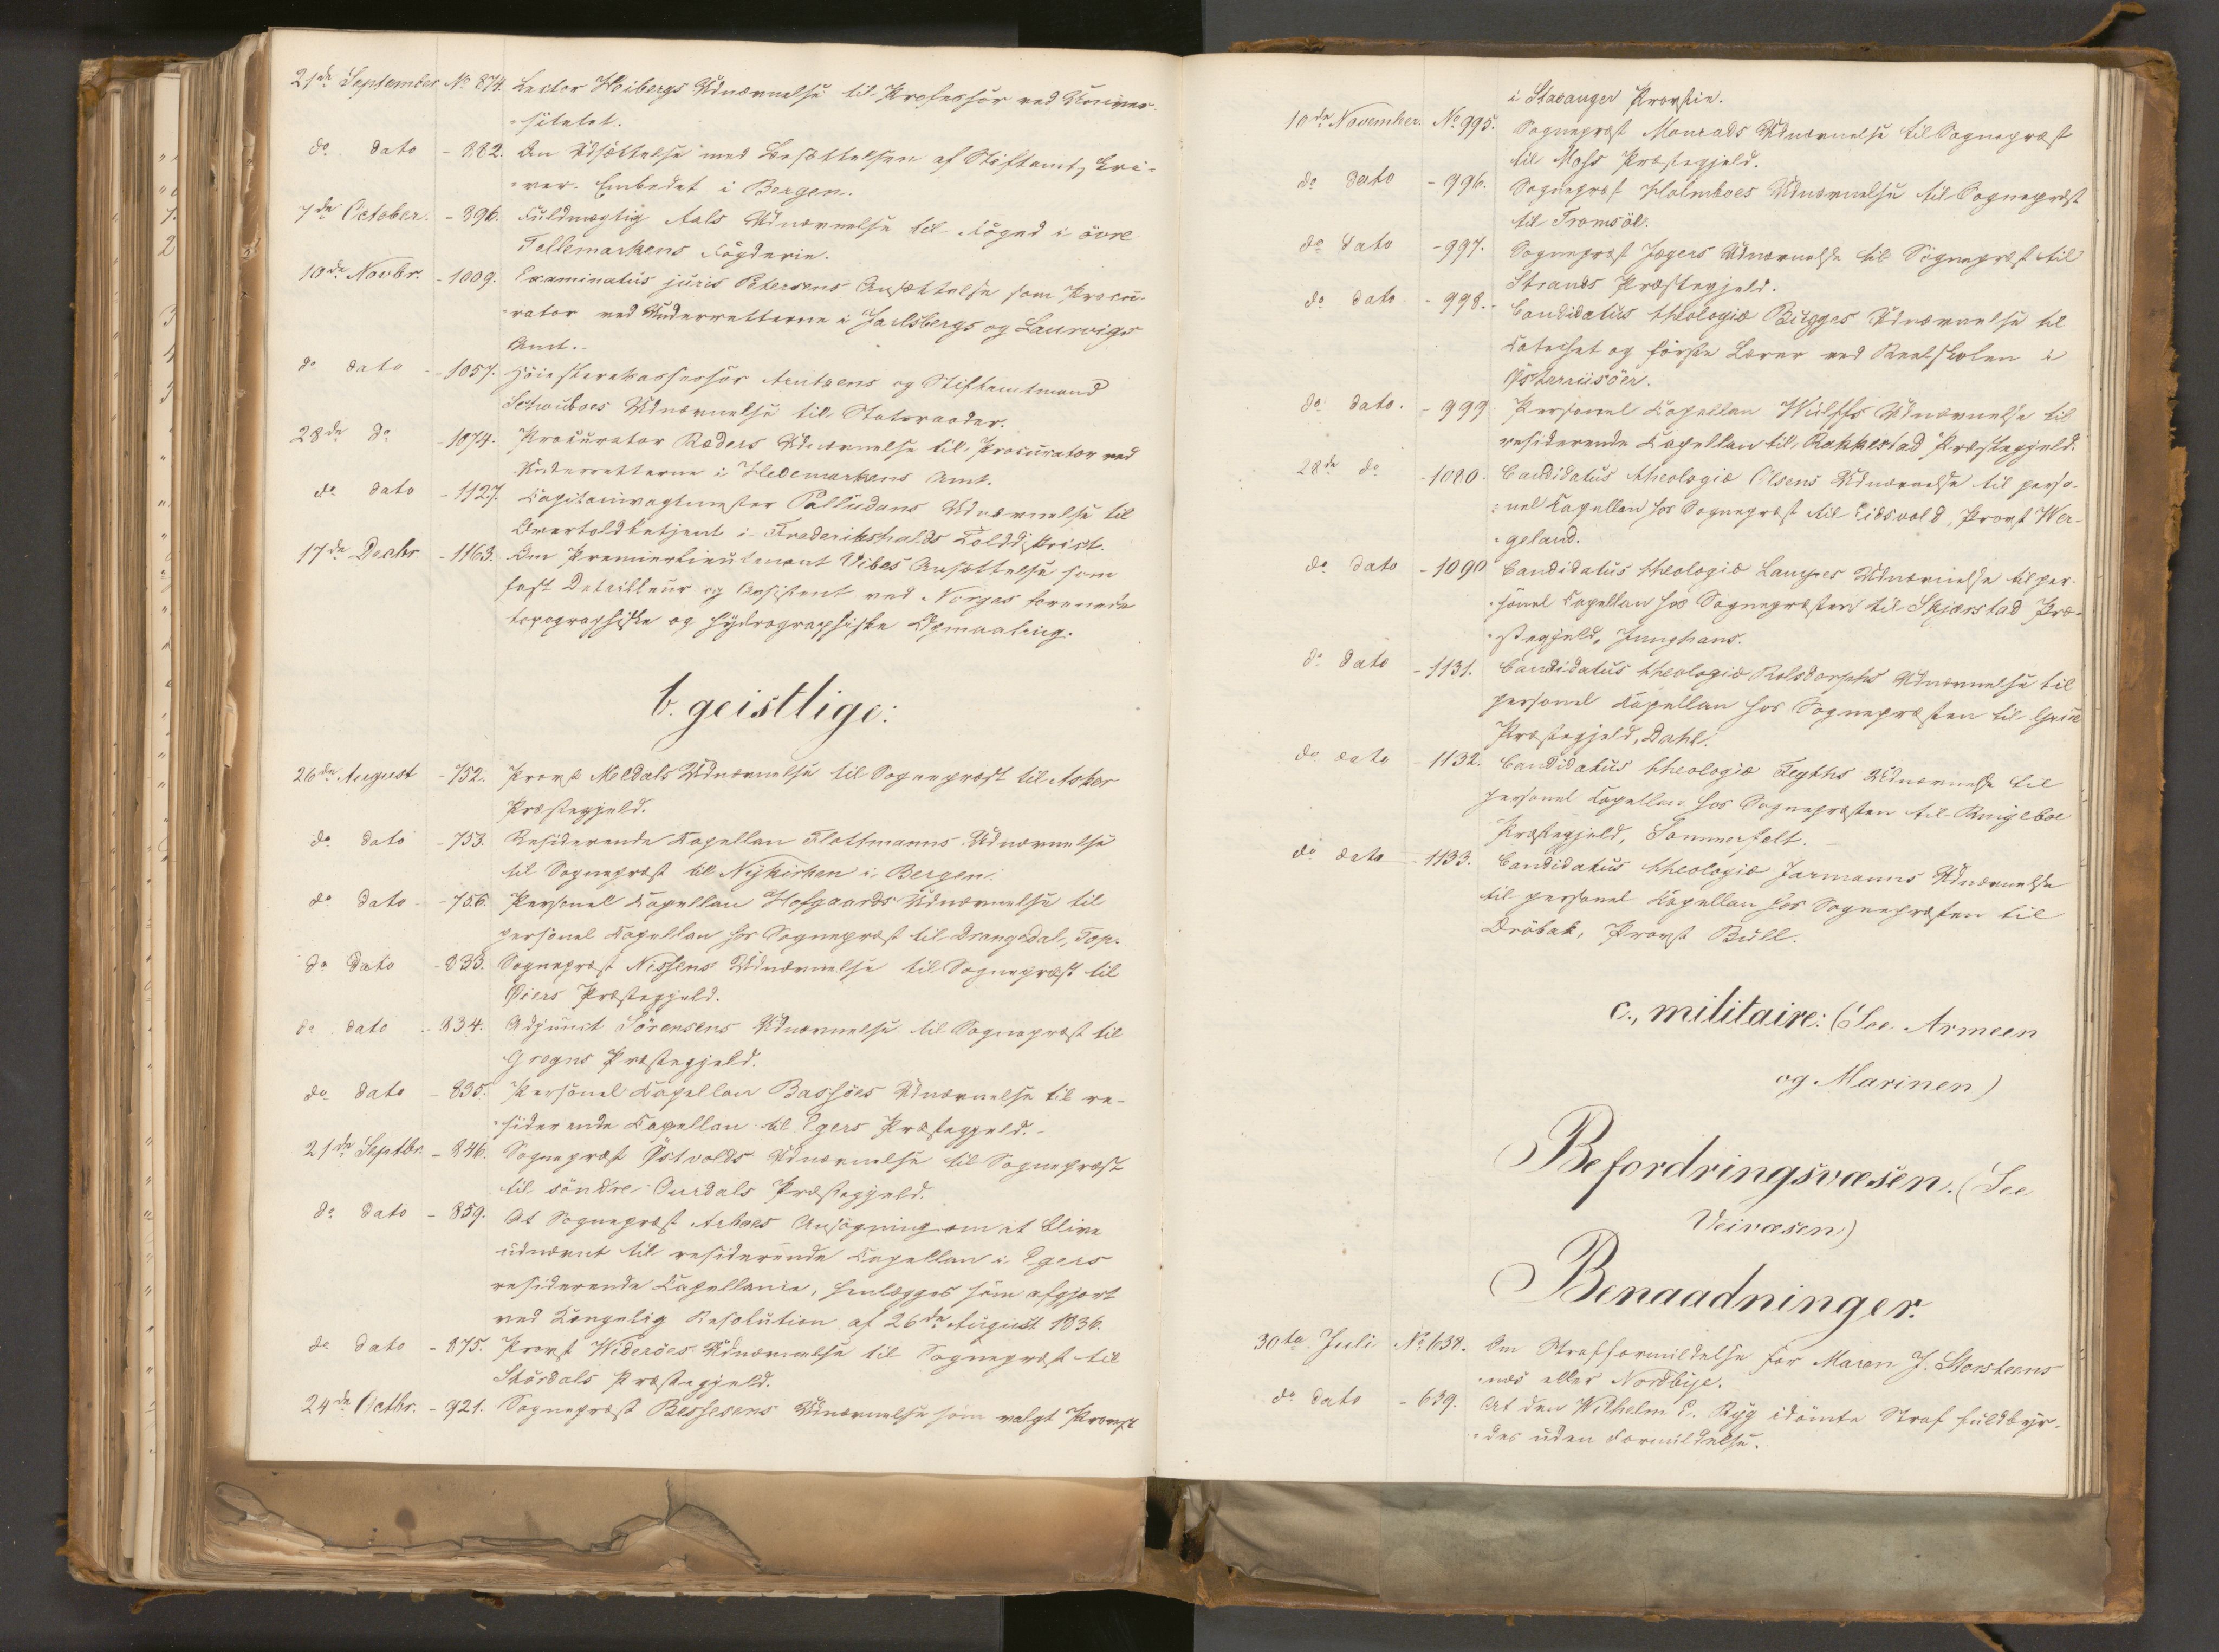 21de September No 874. Lector Heibergs Udnævnelse til Professor ved Univer-
sitetet.
do dato - 882. Om Udsættelse med Besættelsen af Stiftamtskri-
ver-Embedet i Bergen.
7de October. - 896. Fuldmægtig Aals Udnævnelse til Foged i övre
Tellemarkens Fogderie.
10de Novbr. - 1009. Examinatus juris Petersens Ansættelse som Procu-
rator ved Underretterne i Jarlsbergs og Laurvigs
Amt.
do dato - 1057. Höiesteretsassessor Arntzens og Stiftamtmand
Schouboes Udnævnelse til Statsraader.
28de do - 1074. Procurator Ræders Udnævnelse til Procurator ved
Underretterne i Hedemarkens Amt.
do dato - 1127. Capitainvagtmester Palludans Udnævnelse til
Overtoldbetjent i Frederikshalds Tolddistrict.
17de Decbr - 1163. Om Premierlieutenant Vibes Ansættelse som
fast Detailleur og Assistent ved Norges forenede
topographiske og hydrographiske Opmaaling.
b. geistlige:
26de August - 752. Provst Meldals Udnævnelse til Sognepræst til Asker
Præstegjeld.
do dato - 753. Residerende Kapellan Flottmanns Udnævnelse
til Sognepræst til Nykirken i Bergen.
do dato - 756. Personel Kapellan Hofgaards Udnævnelse til
personel Kapellan hos Sognepræst til Drangedal, Top.
do dato - 833. Sognepræst Nissens Udnævnelse til Sognepræst til
Øiers Præstegjeld.
do dato - 834. Adjunct Sörensens Udnævnelse til Sognepræst til
Grogns Præstegjeld.
do dato - 835. Personel Kapellan Bassöes Udnævnelse til re-
siderende Capellan til Egers Præstegjeld.
21de Septbr. - 846. Sognepræst Østvolds Udnævnelse til Sognepræst
til söndre Ourdals Præstegjeld.
do dato - 859. At Sognepræst Arboes Ansögning om at blive
udnævnt til residerende Capellan i Egers
residerende Capellanie, henlægges som afgjort
ved Kongelig Resolution af 26de August 1836.
do dato - 875. Provst Wideröes Udnævnelse til Sognepræst til
Stördals Præstegjeld.
24de Octbr. - 921. Sognepræst Bessesens Udnævnelse som valgt Provst
i Stavanger Provstie.
10de November. No 995. Sognepræst Monrads Udnævnelse til Sognepræst
til Moss Præstegjeld.
do dato - 996. Sognepræst Holmboes Udnævnelse til Sognepræst
til Tromsöe.
do dato - 997. Sognepræst Jægers Udnævnelse til Sognepræst til
Strands Præstegjeld.
do dato - 998. Candidatus theologiæ Bugges Udnævnelse til
Catechet og förste Lærer ved Realskolen i
Østerriisöer.
do dato. - 999. Personel Capellan Wulffs Udnævnelse til
residerende Capellan til Rakkestad Præstegjeld.
28de do - 1080. Candidatus theologiæ Olsens Udnævnelse til perso-
nel Capellan hos Sognepræst til Eidsvold, Provst Wer-
geland.
do dato - 1090 Candidatus theologiæ Langes Udnævnelse til per-
sonel Capellan hos Sognepræsten til Skjærstad Præ-
stegjeld, Junghans.
do dato - 1131. Candidatus theologiæ Rolsdorphs Udnævnelse til
personel Capellan hos Sognepræsten til Grue
Præstegjeld, Dahl.
do dato - 1132. Candidatus theologiæ Feyths Udnævnelse til
personel Capellan hos Sognepræsten til Ringeboe
Præstegjeld, Sommerfelt.
do dato - 1133. Candidatus theologiæ Jarmanns Udnævnelse
til personel Capellan hos Sognepræsten til
Dröbak, Provst Bull.
c., militaire: (See Armeen
og Marinen)
Befordringsvæsen. (See
Veivæsen)
Benaadninger.
30te Juli No 638. Om Strafformildelse for Maren J. Storsteens-
næs eller Nordbye.
do dato - 639. At den Wilhelm E. Ryg idömte Straf fuldbyr-
des uden Formildelse.